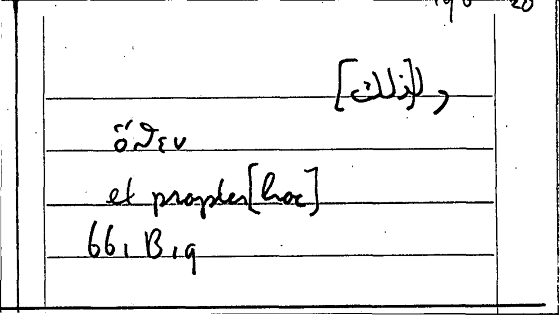 ول[ذلك]
ὅϑεν
et propter[hoc]
66, B, 9